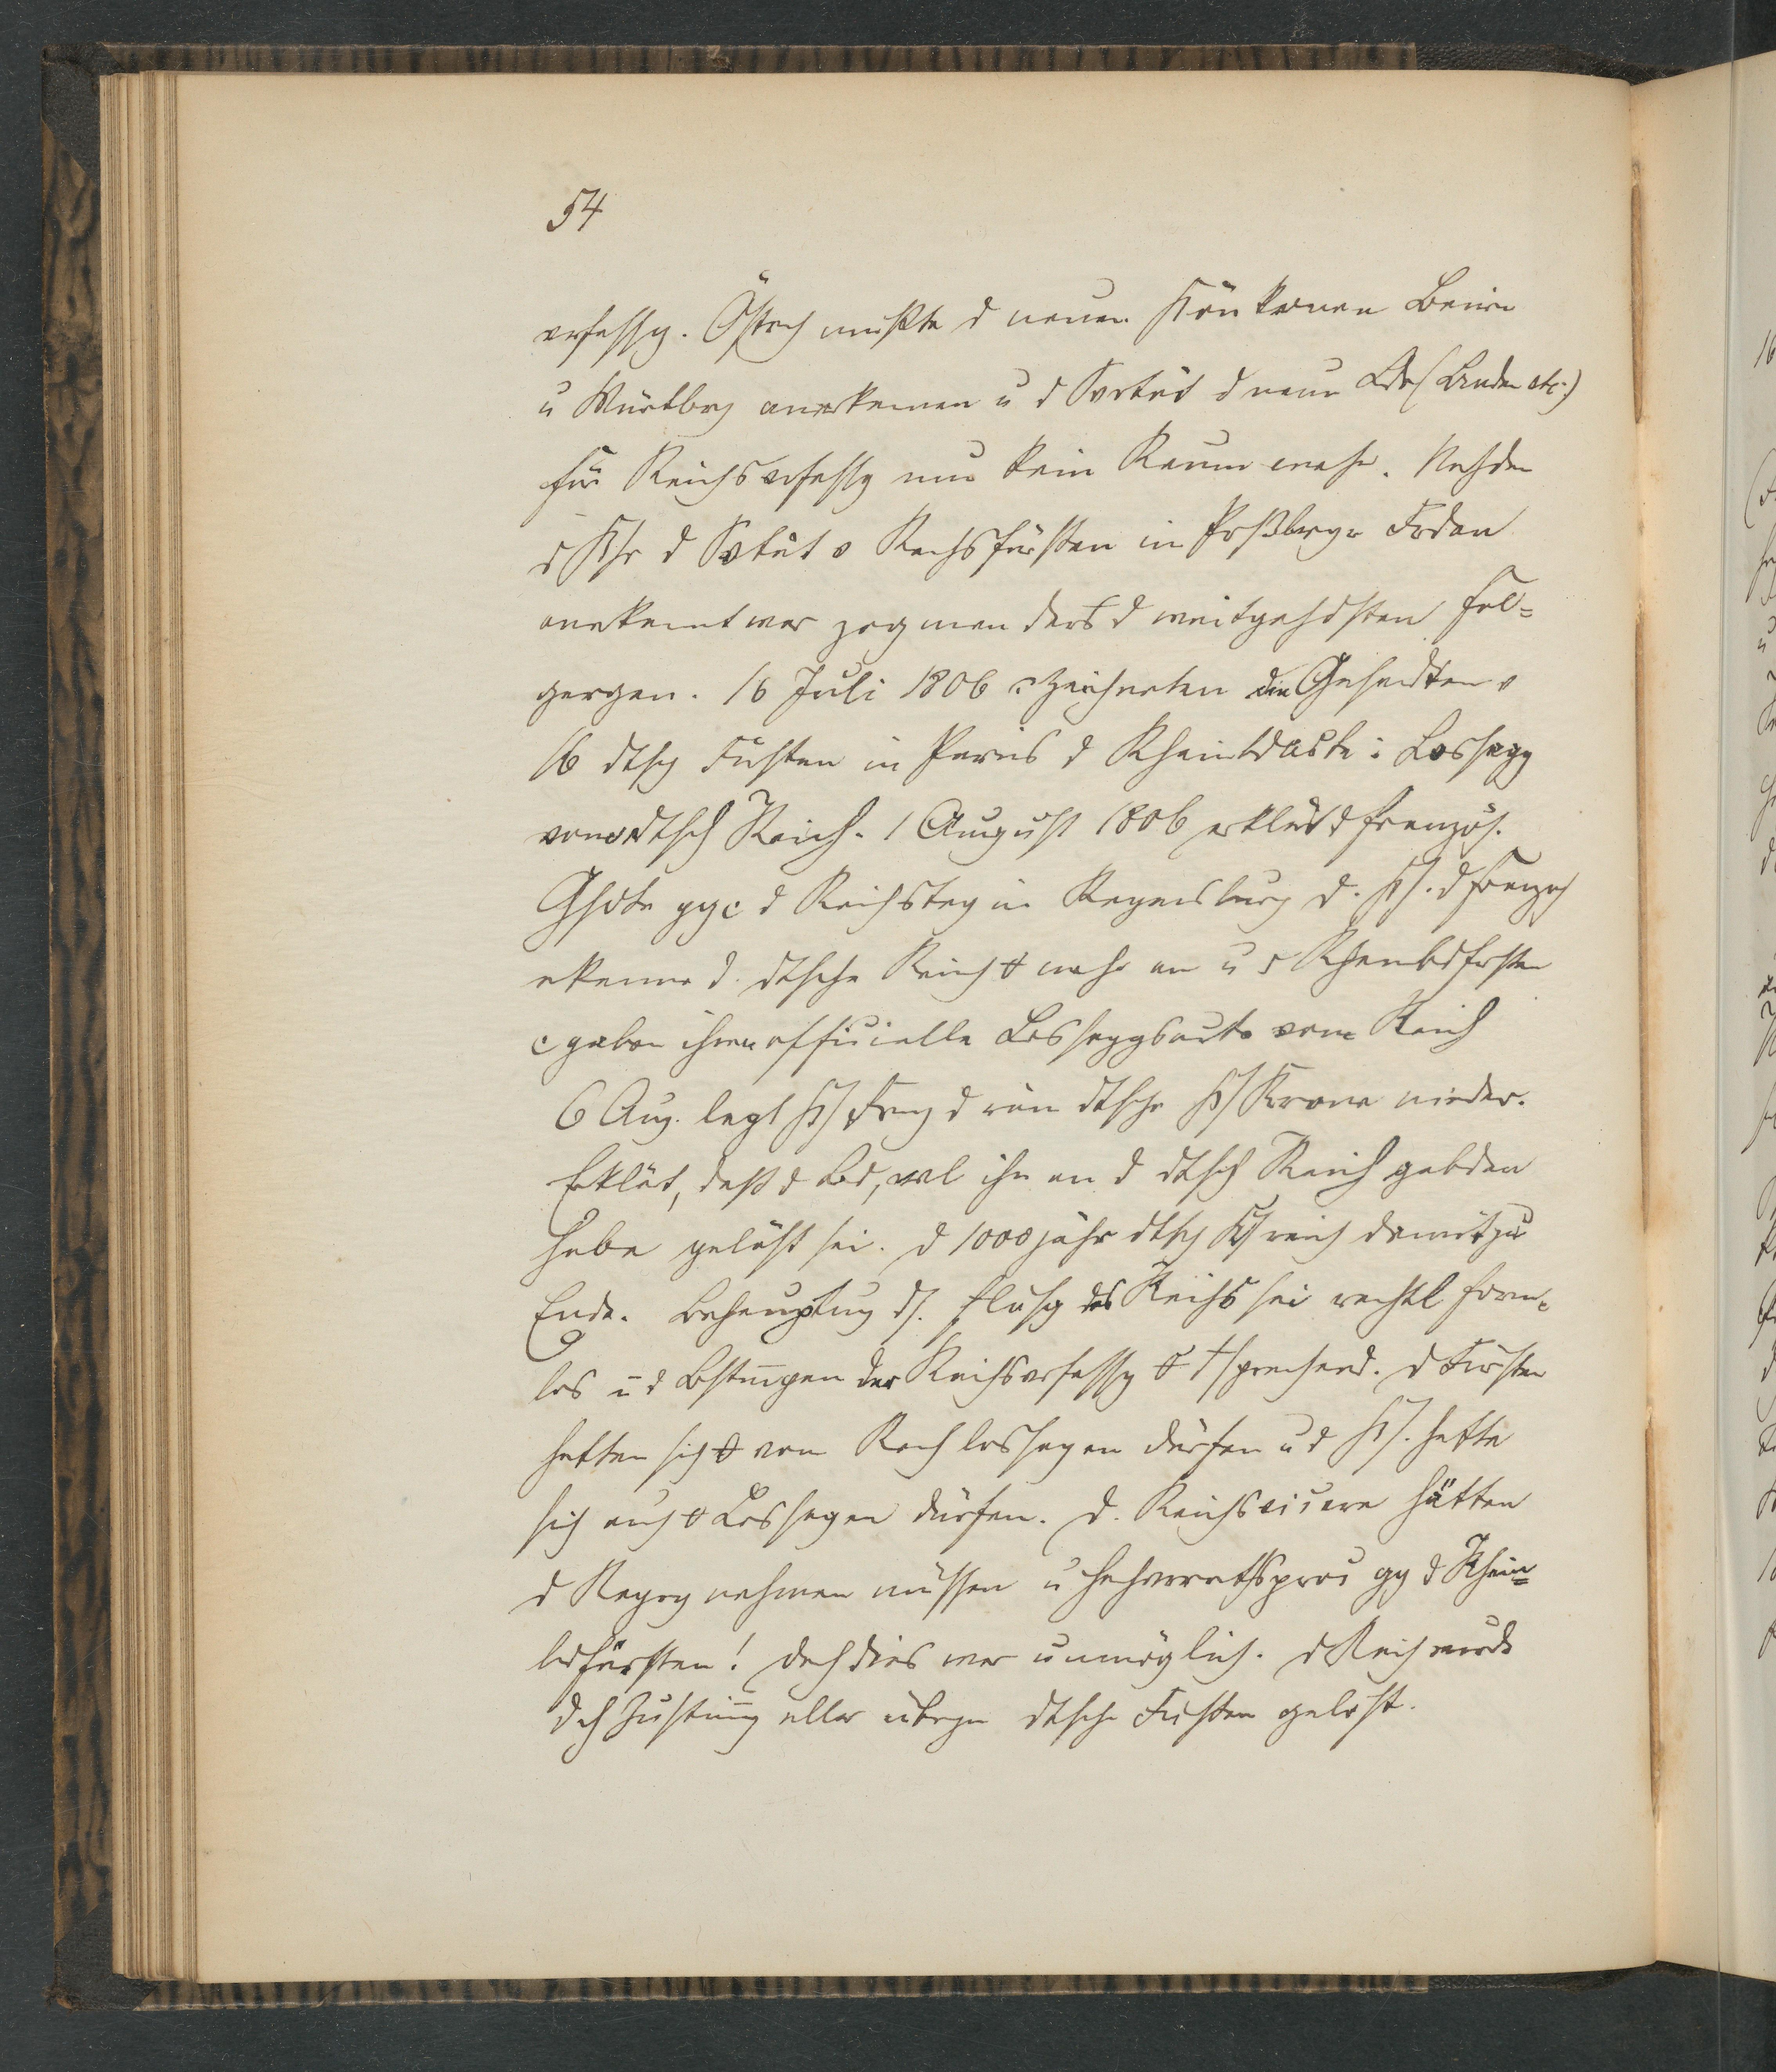 54
verfassg. Östrch mußte d neuen Kön kronen Beiern
u Würtbrg anerkennen u d Svrtät d neun Ldr (Baden etc.)
für Reichsverfassg nun kein Raum mehr. Nachdem
d Svtät d Reichsfürsten in Prßbrgr Frdn
anerkannt war zog man draus d weitgehdsten Fol-
gergen. 16 Juli 1806 zeichneten die Gesandten v
16 dtsch Fürsten in Paris d Rheinbdacte: Lossagg
vom dtsch Reich. 1 August 1806 erklärt d französ.
Gsdte ggü d Reichstag in Regensburg d. Ks. d Franzos
erkenne d. dtsche Reich # mehr an u d Rheinbdfrsten
gaben ihren officielle Lossaggsacte vom Reich
6 Aug. legt Ks Frnz d röm dtsche Ks Krone nieder.
Erklärt, daß d Bd, wel ihn an d dtsch Reich gebden
habe gelöst sei. d 1000 jähr dtsch Ks reich damit zu
Ende. Behauptung ds. Auflösg des Reichs sei rechtl form-
los u d Bstimgen der Reichsverfassg # entsprechend. d Fürsten
hätten sich # vom Reich lossagen dürfen u d Ks. hätte
sich auch # Lossagen dürfen. d. Reichsvicare hätten
d Regrg nehmen müssen u Hochverrathsproc gg d Rhein-
bdfürsten! doch dies war unmöglich. d Reich wurde
dch Zustimg aller übrgn dtsche Fürsten gelöst.